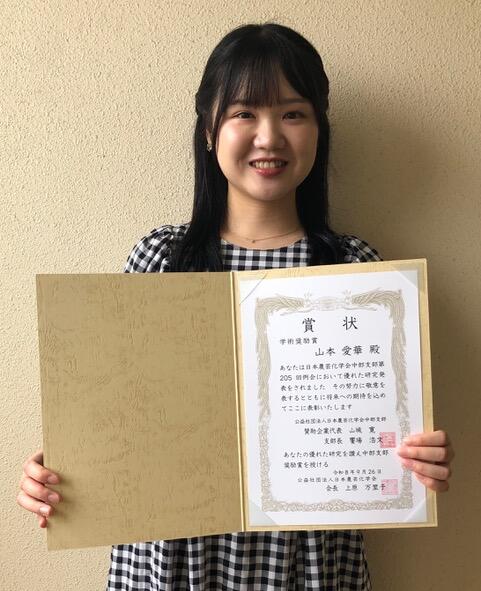 賞状
学術奨励賞
山本 愛華 殿
あなたは日本農芸化学会中部支部第
205 回例会において優れた研究発
表をされました その努力に敬意を
表するとともに将来への期待を込め
てここに表彰いたします
公益社団法人日本農芸化学会中部支部
賛助企業代表 山城 寛
支部長 饗場 浩文
あなたの優れた研究を讃え中部支部
奨励賞を授ける
9月26日
公益社団法人日本農芸化学会
会長 上原 万里子